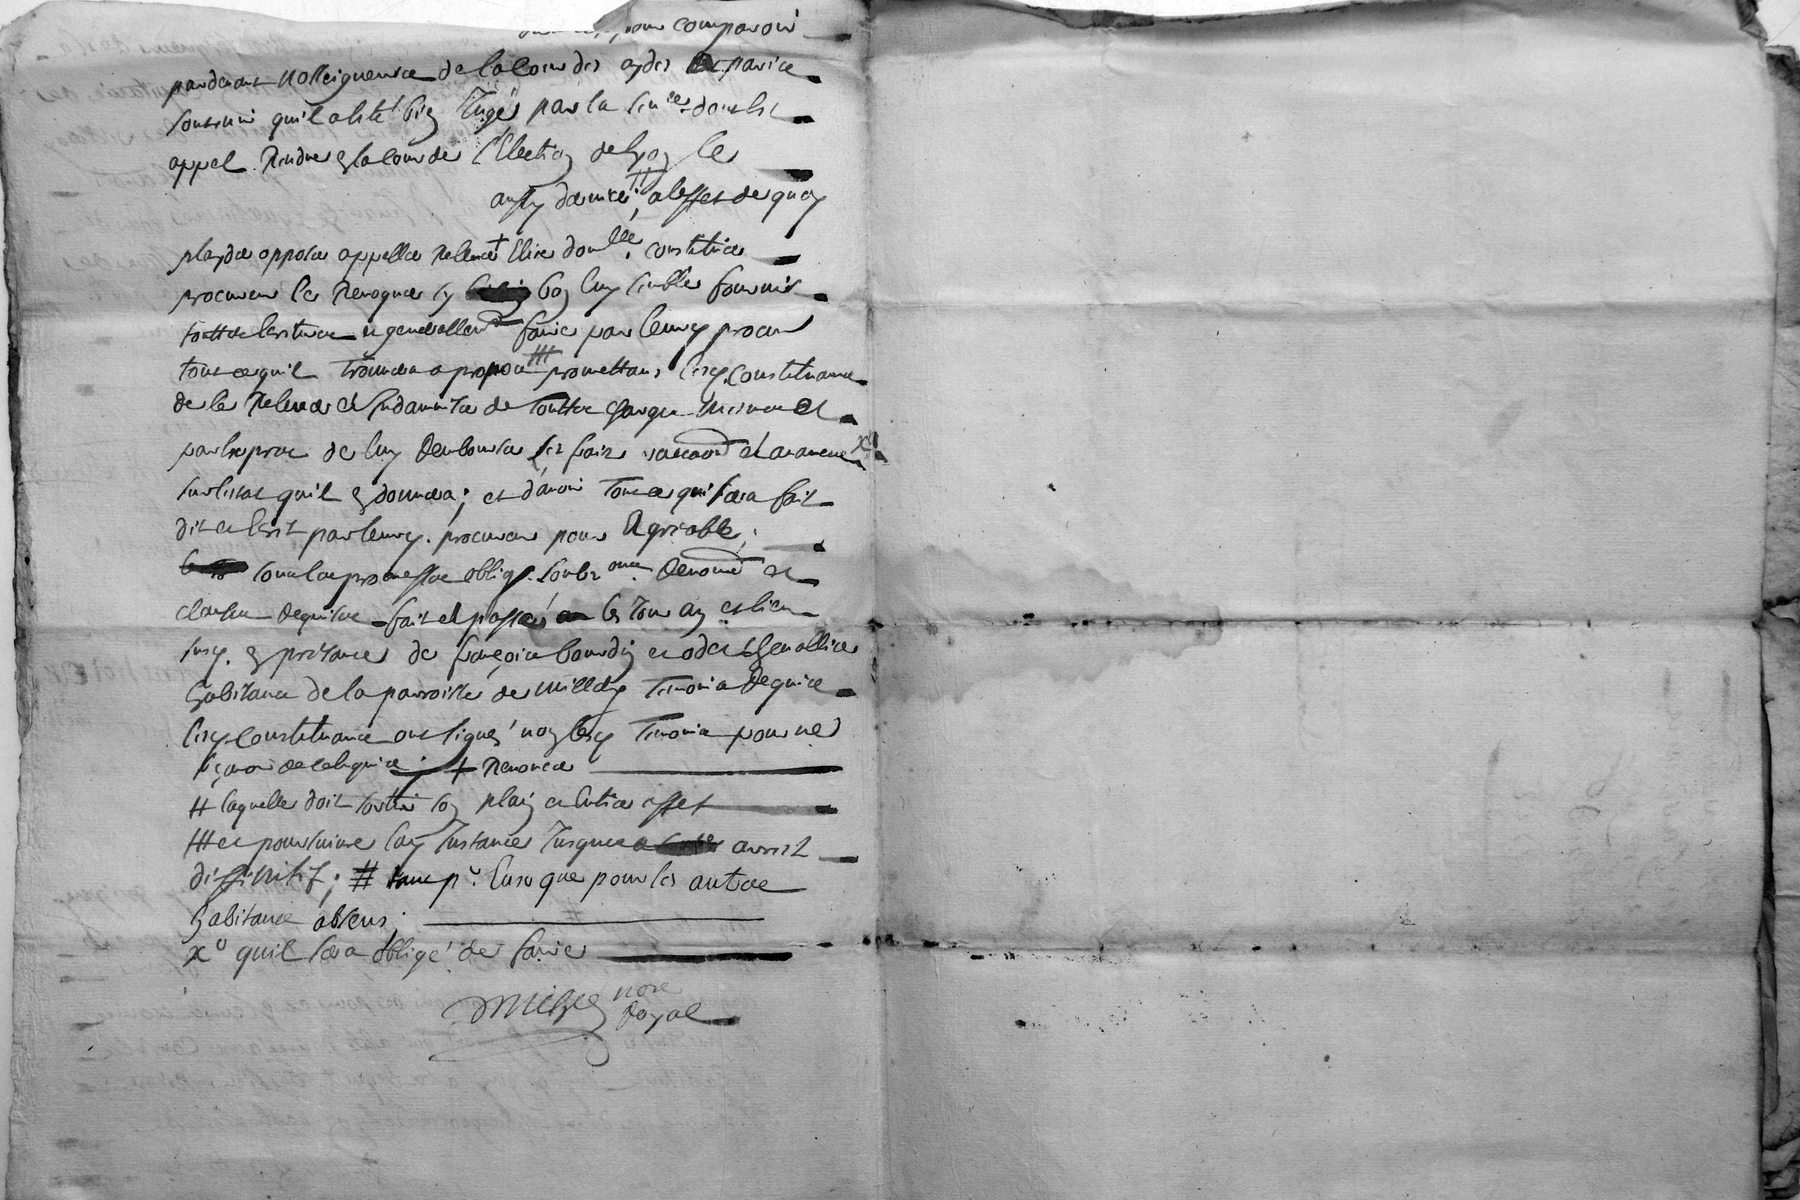 pour comparoir
pardevant nosseigneurs de la cour des aydes de paris
soustenir quil a esté bien Jugé par la sence dont est
appel Rendue en la cour de l'Election de le
au moy dernier, # a leffet de quoy
playder opposer appeller Relever + Elire domlle constituer
procureur les Revoquer sy bon luy semble fournir
touttes Escritures et generallemt faire par leurs procur
tout ce quil trouvera a propos ### promettans lesd. constituans
de le Relever et Indamniser de touttes charges mesmes et
par expres de luy Rembourser ses frais et avances x°
sur lestat quil en donnera; et davoir tout ce qui sera fait
dit et Escrit par leurd. procureur pour Agreable;
soubs les promesses obligs. soubzons. Renond et
clauses Requises fait et passé les Jour an et lieu
susd. en presance de françois bourdin et
habitans de la parroisse de milly Temoins Requis
lesd. Constituans ont signé non lesd Temoins pour ne
sçavoir de ce Enquis; + Renoncer
# laquelle doit sortir son plain et Entier effet
### et poursuivre lad Instance Jusques a arrest
diffinitif; # tant pr. Eux que pour les autres
habitans absens;
x° quil sera obligé de faire
Michon nore
Royal